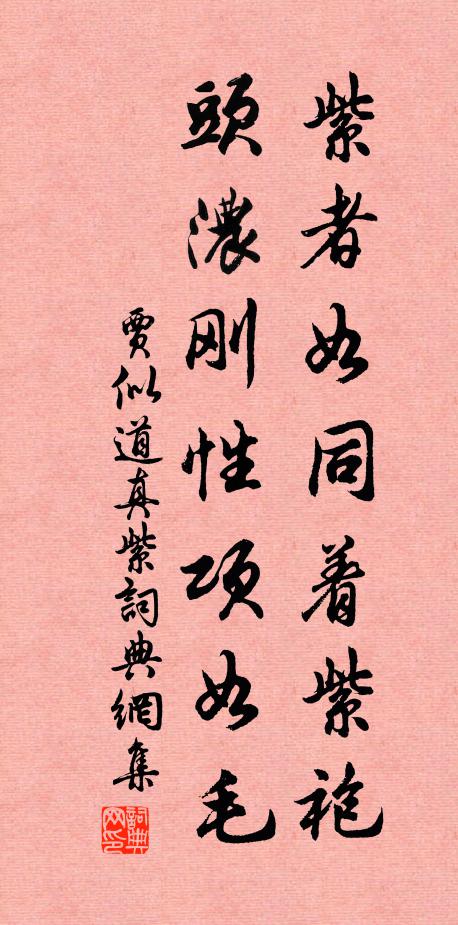 紫者如同着紫袍
頭濃刚性项如毛
賈似道真紫詞典網集
詞典
网印